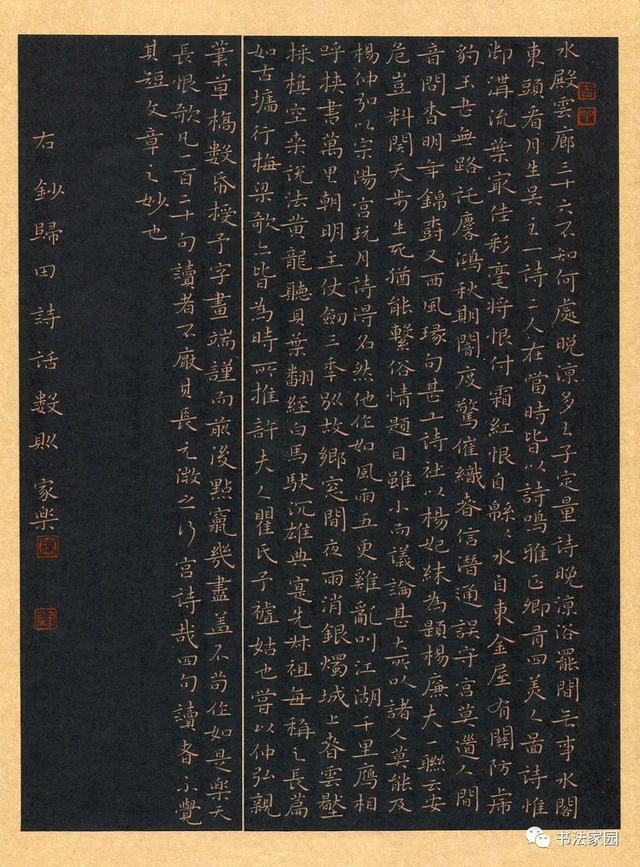 水殿雲廊三十六不知何處晚涼多王子定量詩晚涼浴罷閒無事水閣
東頭看月生吴主一詩二人在當時皆以詩鳴雅正卿有四美人啚詩惟
御溝流葉最佳彩毫將恨付霜紅恨自緜々水自東金屋有關防
豹玉老無路託鴻秋期闇度驚催織春信潛通誤守宮莫道人間
音問杳明年錦樹又西風瑑句甚工詩社以楊妃襪為題楊廉夫一聯云安
危豈料関天步生死猶能繫俗情題目雖小而議論甚大所以諸人莫能及
楊仲弘以宗陽宮玩月詩得名然他作如風雨五更雞亂叫江湖千里鴈相
呼挾書萬里朝明主仗劒三季別故鄉窓間夜雨消銀燭城上春雲壓
採樓空桑説法黄龍聽貝葉翻經白馬馱沉雄典實先叔祖每稱之長篇
如古壙行梅梁歌亦皆為時所推許夫人瞿氏予祖姑也嘗以仲弘親
筆草稿數帋授予字畫端謹而前後點竄幾盡蓋不苟作如是樂天
長恨歌凡一百二十句讀者不厭其長元微之行宮詩哉四句讀者不覺
其短文章之妙也
右鈔歸田詩話數則 家樂
书法家园